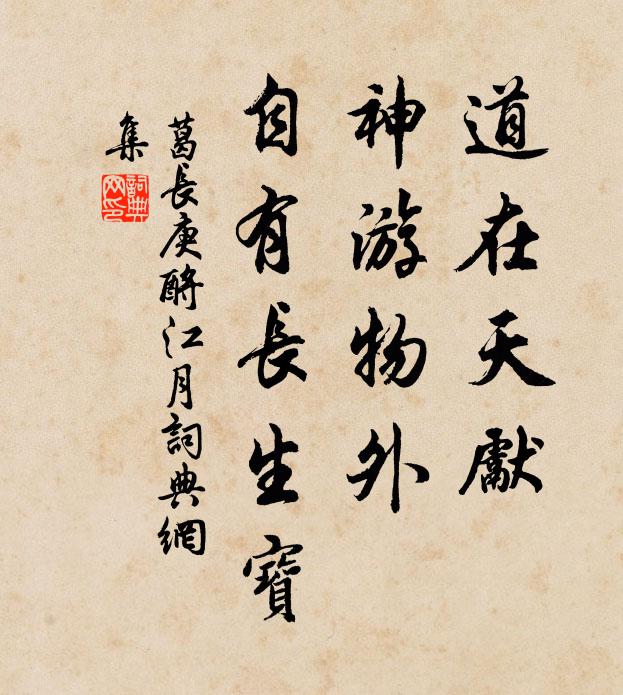 道在天獻
神游物外
自有長生寶
葛長庚酹江月詞典網
集
詞典網印